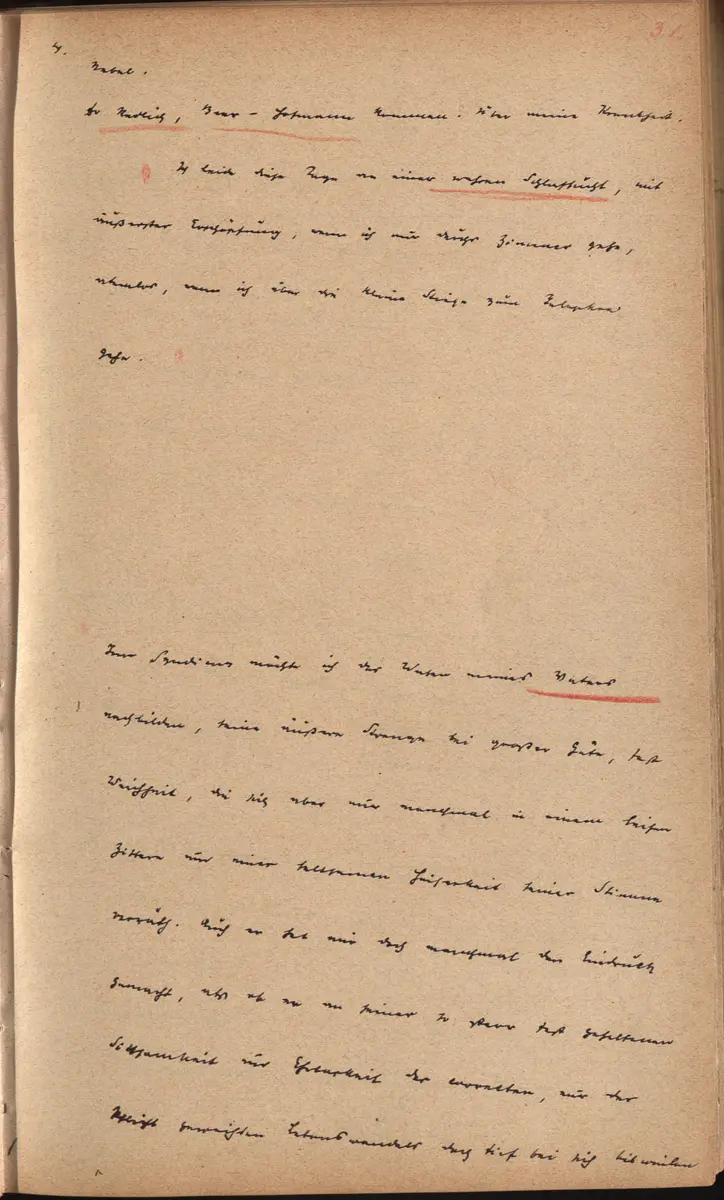 31.
4.
Nebel.
Dr Redlich, Beer-Hofmann kommen. Über meine Krankheit.
Ich leide diese Tage an einer wahren Schlafsucht, mit
äußerster Erschöpfung, wenn ich nur durchs Zimmer gehe,
atemlos, wenn ich über die kleine Stiege zum Telephon
gehe.
Syndicus möchte ich das Wesen meines Vaters
nachbilden, seine äußere Strenge bei großer Güte, fast
Weichheit, die sich aber nur manchmal in einem leisen
Zittern und einer seltsamen Heiserkeit seiner Stimme
verräth. Auch er hat mir doch manchmal den Eindruck
gemacht, als ob er an seiner so starr fest gehaltenen
Sittsamkeit und Ehrbarkeit des correcten, nur der
Pflicht geweihten Lebenswandels doch tief bei sich bisweilen